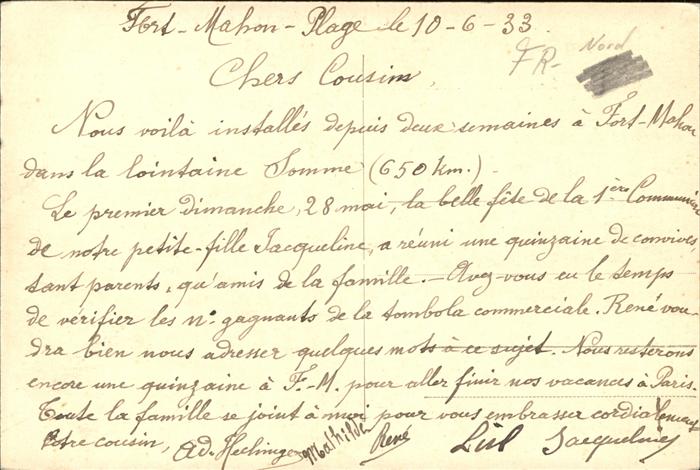 Fort-Mahon-Plage le 10-6-33.
FR- Nord
Chers Cousins,
Nous voilà installés depuis deux semaines à Fort-Mahon
dans la lointaine Somme (650 km.) -
Le premier dimanche, 28 mai, la belle fête de la 1ère Communion
de notre petite-fille Jacqueline, a réuni une quinzaine de convives,
tant parents, qu'amis de la famille. - Avez-vous eu le temps
de vérifier les nos gagnants de la tombola commerciale. René vou-
dra bien nous adresser quelques mots à ce sujet. Nous resterons
encore une quinzaine à F.-M. pour aller finir nos vacances à Paris.
Toute la famille se joint à moi pour vous embrasser cordialement
Votre cousin, Ad. Hechinger Mathilde René Jacqueline